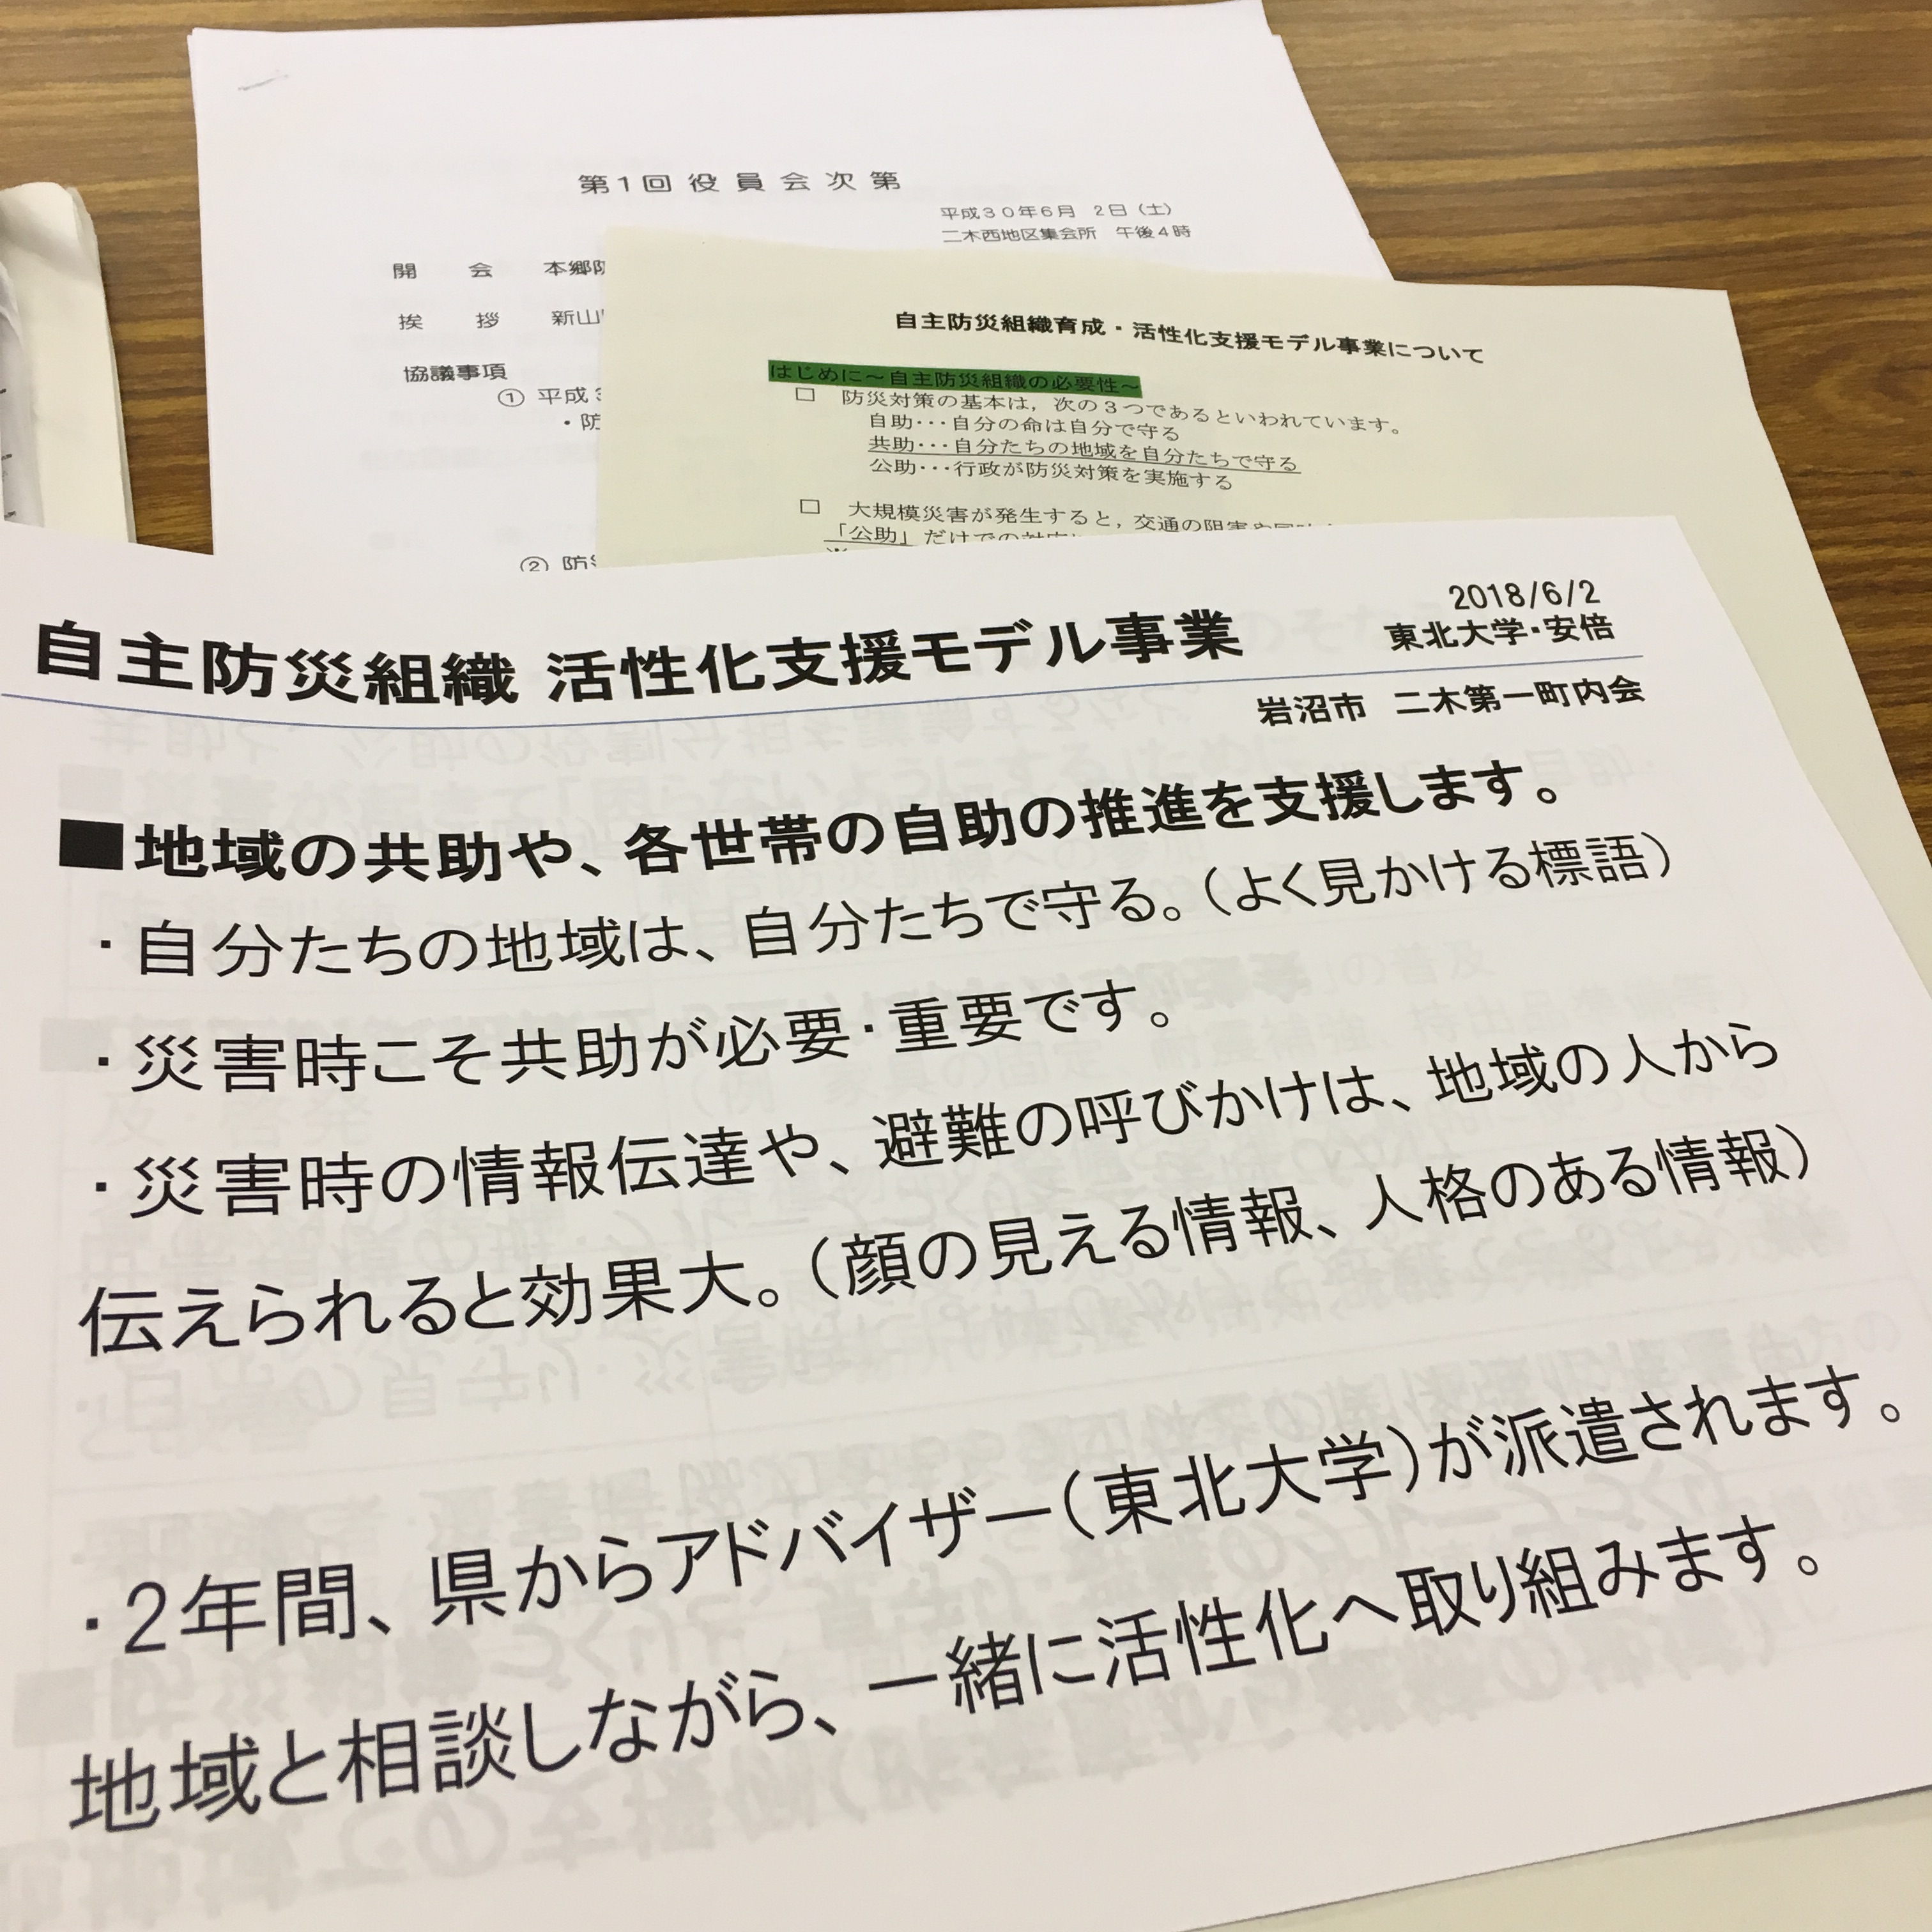 第1回役員会次第
平成30年6月 2日（土）
二木西地区集会所 午後4時
開 会 本郷防
挨 拶 新山
協議事項
① 平成3
・防
② 防災
自主防災組織育成・活性化支援モデル事業について
はじめに～自主防災組織の必要性～
□ 防災対策の基本は，次の3つであるといわれています。
自助･･･自分の命は自分で守る
共助･･･自分たちの地域を自分たちで守る
公助･･･行政が防災対策を実施する
□ 大規模災害が発生すると，交通の阻害や同時
「公助」だけでの対応
自主防災組織 活性化支援モデル事業
2018/6/2
東北大学・安倍
岩沼市 二木第一町内会
■地域の共助や、各世帯の自助の推進を支援します。
・自分たちの地域は、自分たちで守る。（よく見かける標語）
・災害時こそ共助が必要・重要です。
・災害時の情報伝達や、避難の呼びかけは、地域の人から
伝えられると効果大。（顔の見える情報、人格のある情報）
・2年間、県からアドバイザー（東北大学）が派遣されます。
地域と相談しながら、一緒に活性化へ取り組みます。